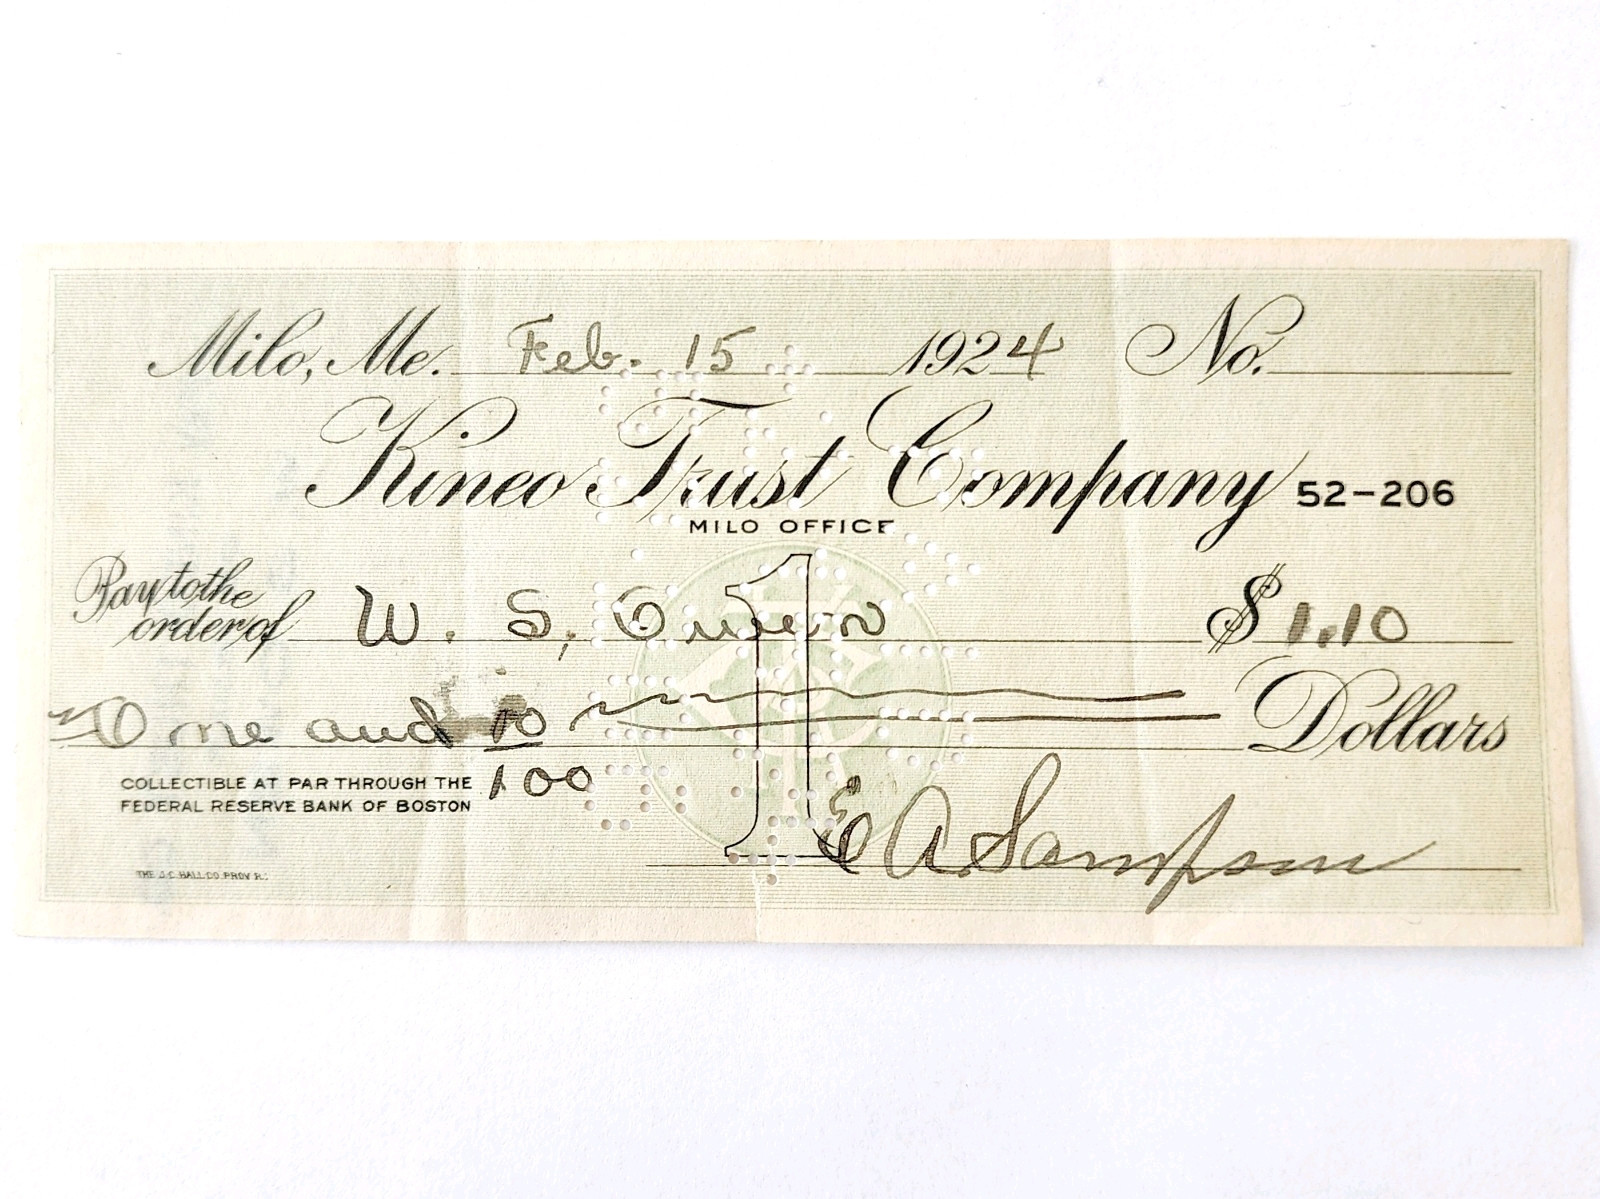 Milo, Me. Feb. 15 1924 No.
Kineo Trust Company 52-206
MILO OFFICE
Pay to the
order of W. S. Owen $ 1.10
One and 10/100 Dollars
COLLECTIBLE AT PAR THROUGH THE
FEDERAL RESERVE BANK OF BOSTON
1
E A Sampson
THE J.C. HALL CO. PROV. R.I.